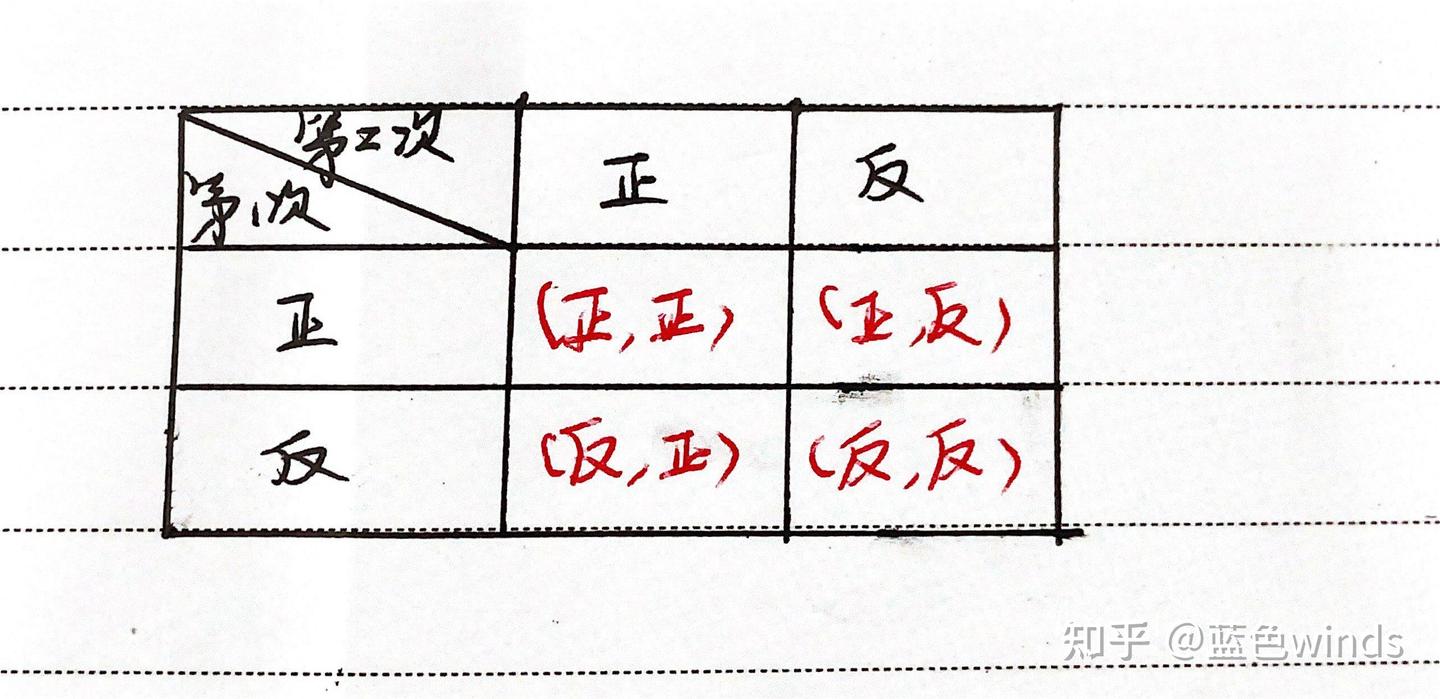 第二次
第1次
正 反
正 (正,正) (正,反)
反 (反,正) (反,反)
知乎 @蓝色winds